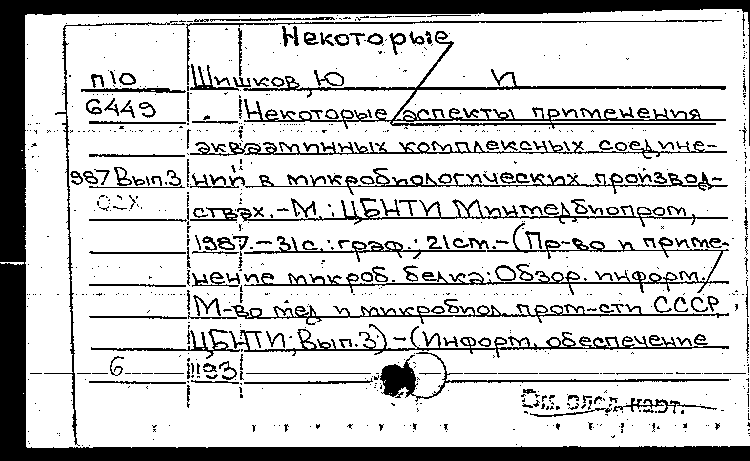 Некоторые
п10 Шишков, Ю И
6449 Некоторые аспекты применения
аквааминных комплексных соедине-
987 Вып.3 ний в микробиологических производ-
02X ствах.-М.: ЦБНТИ Минмедбиопром,
1987.-31с.: граф.; 21см.-(Пр-во и приме-
нение микроб. белка: Обзор. информ.
М-во мед и микробиол. пром-сти СССР,
ЦБНТИ; Вып.3)-(Информ. обеспечение
6 1193
См. след. карт.